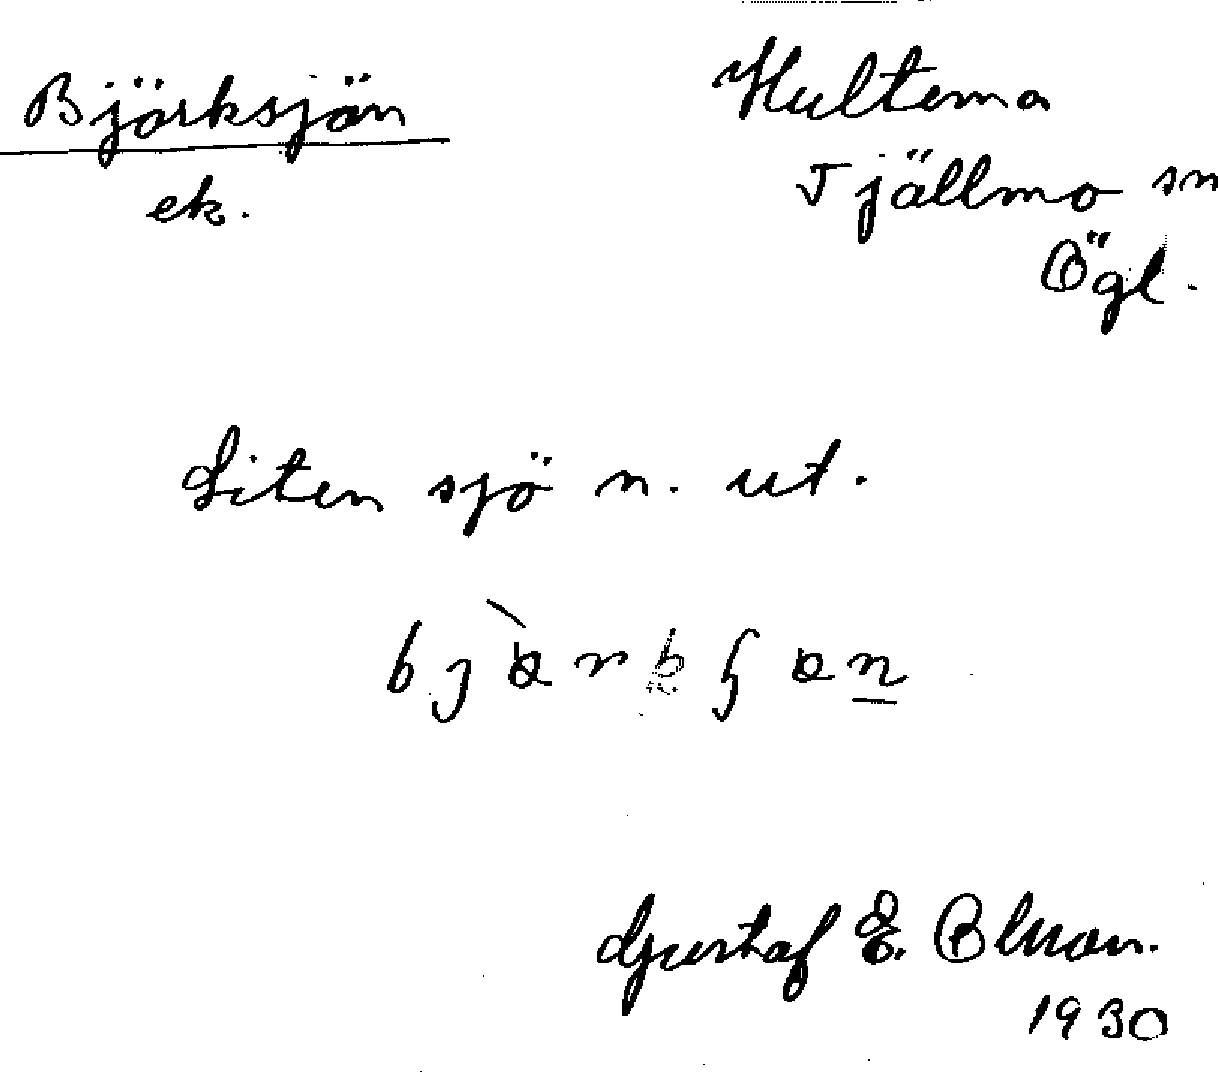 Björksjön
ek.
Hultema
Tjällmo sn
Ögl.
Liten sjö n. ut.
Gustaf E. Blman.
1930